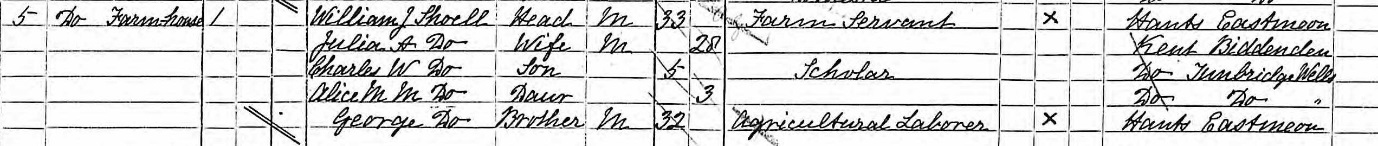 5 Do Farm-house 1 William J Shoell Head M 33 Farm Servant × Hants Eastmeon
Julia A Do Wife M 28 Kent Biddenden
Charles W Do Son 5 Scholar Do Tunbridge Wells
Alice M M Do Daur 3 Do Do "
George Do Brother M 32 Agricultural Laborer × Hants Eastmeon